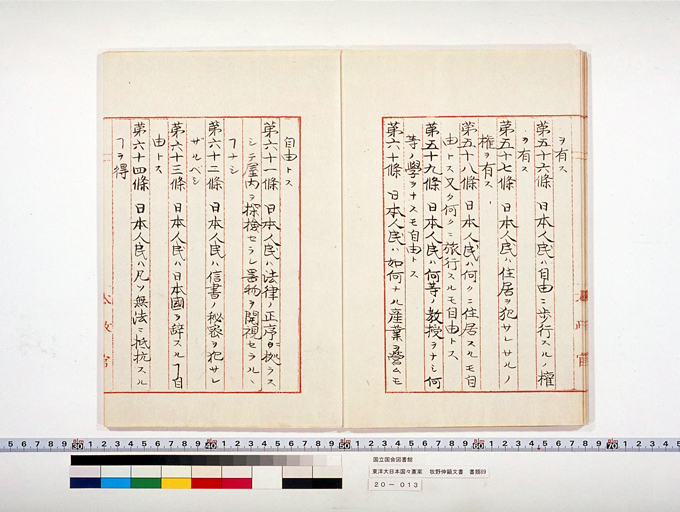 ヲ有ス
第五十六條 日本人民ハ自由ニ歩行スルノ權
ヲ有ス
第五十七條 日本人民ハ住居ヲ犯サレサルノ
權ヲ有ス
第五十八條 日本人民ハ何クニ住居スルモ自
由トス又何クニ旅行スルモ自由トス
第五十九條 日本人民ハ何等ノ教授ヲナシ何
等ノ學ヲナスモ自由トス
第六十條 日本人民ハ如何ナル産業ヲ營ムモ
自由トス
第六十一條 日本人民ハ法律ノ正序ニ拠ラス
シテ屋内ヲ探檢セラレ器物ヲ開視セラルヽ
ヿナシ
第六十二條 日本人民ハ信書ノ秘密ヲ犯サレ
サルベシ
第六十三條 日本人民ハ日本國ヲ辞スルヿ自
由トス
第六十四條 日本人民ハ凡ソ無法ニ抵抗スル
ヿヲ得
太政官
5 6 7 8 9 30 1 2 3 4 5 6 7 8 9 40 1 2 3 4 5 6 7 8 9 50 1 2 3 4 5 6 7 8 9 60 1 2 3 4 5 6 7 8 9 70 1 2 3 4 5
国立国会図書館
東洋大日本国々憲案 牧野伸顕文書 書類89
20-013